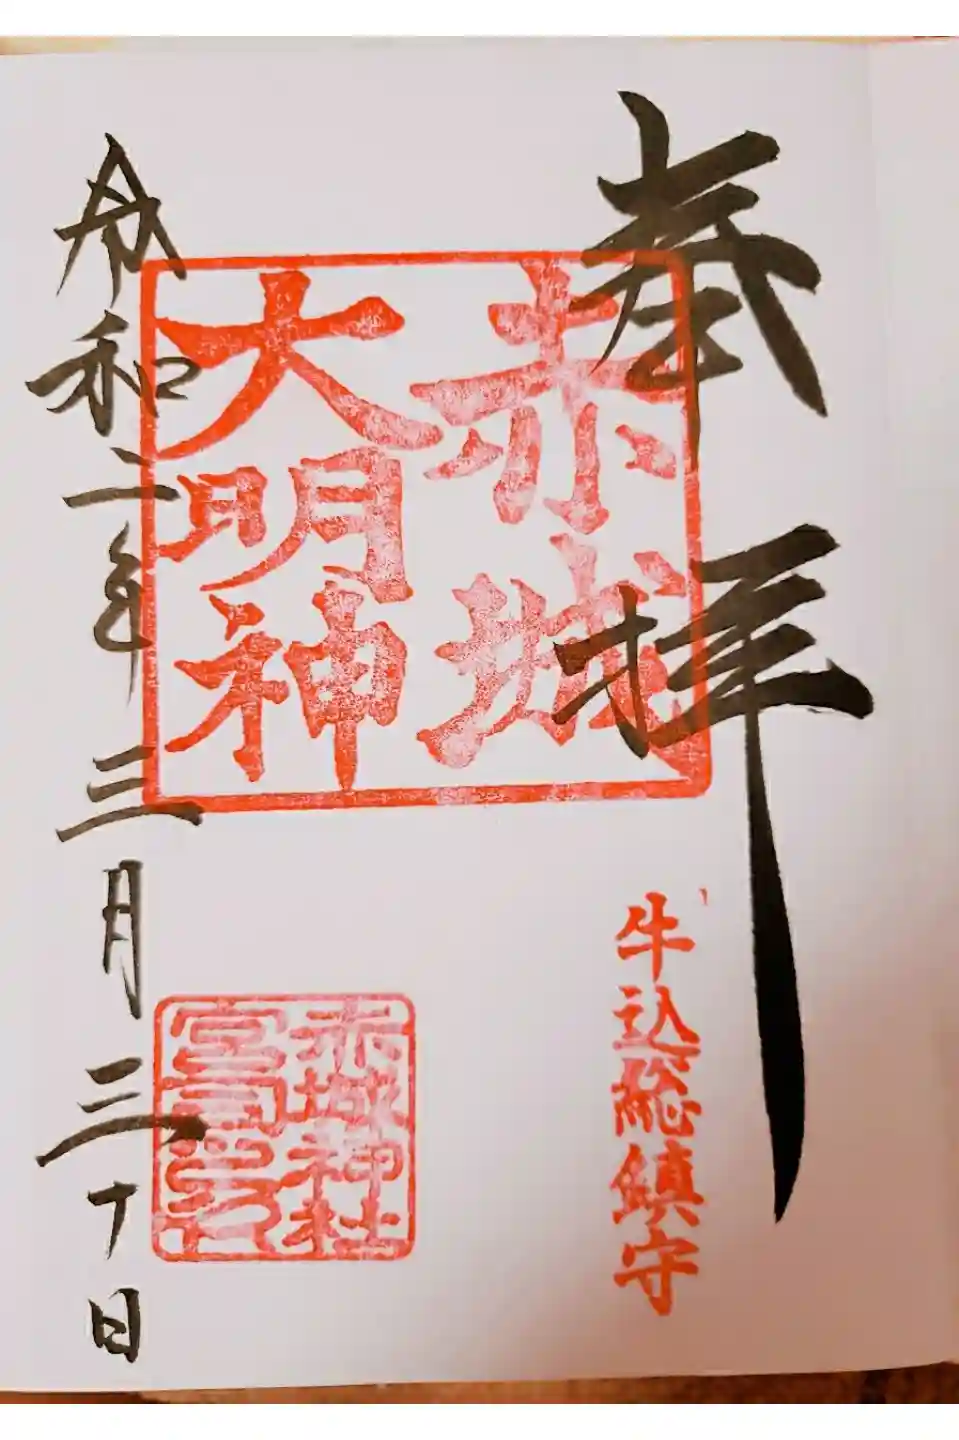 奉拝
牛込総鎮守
赤城
大明神
赤城神社
宮司之印
令和二年三月三十日